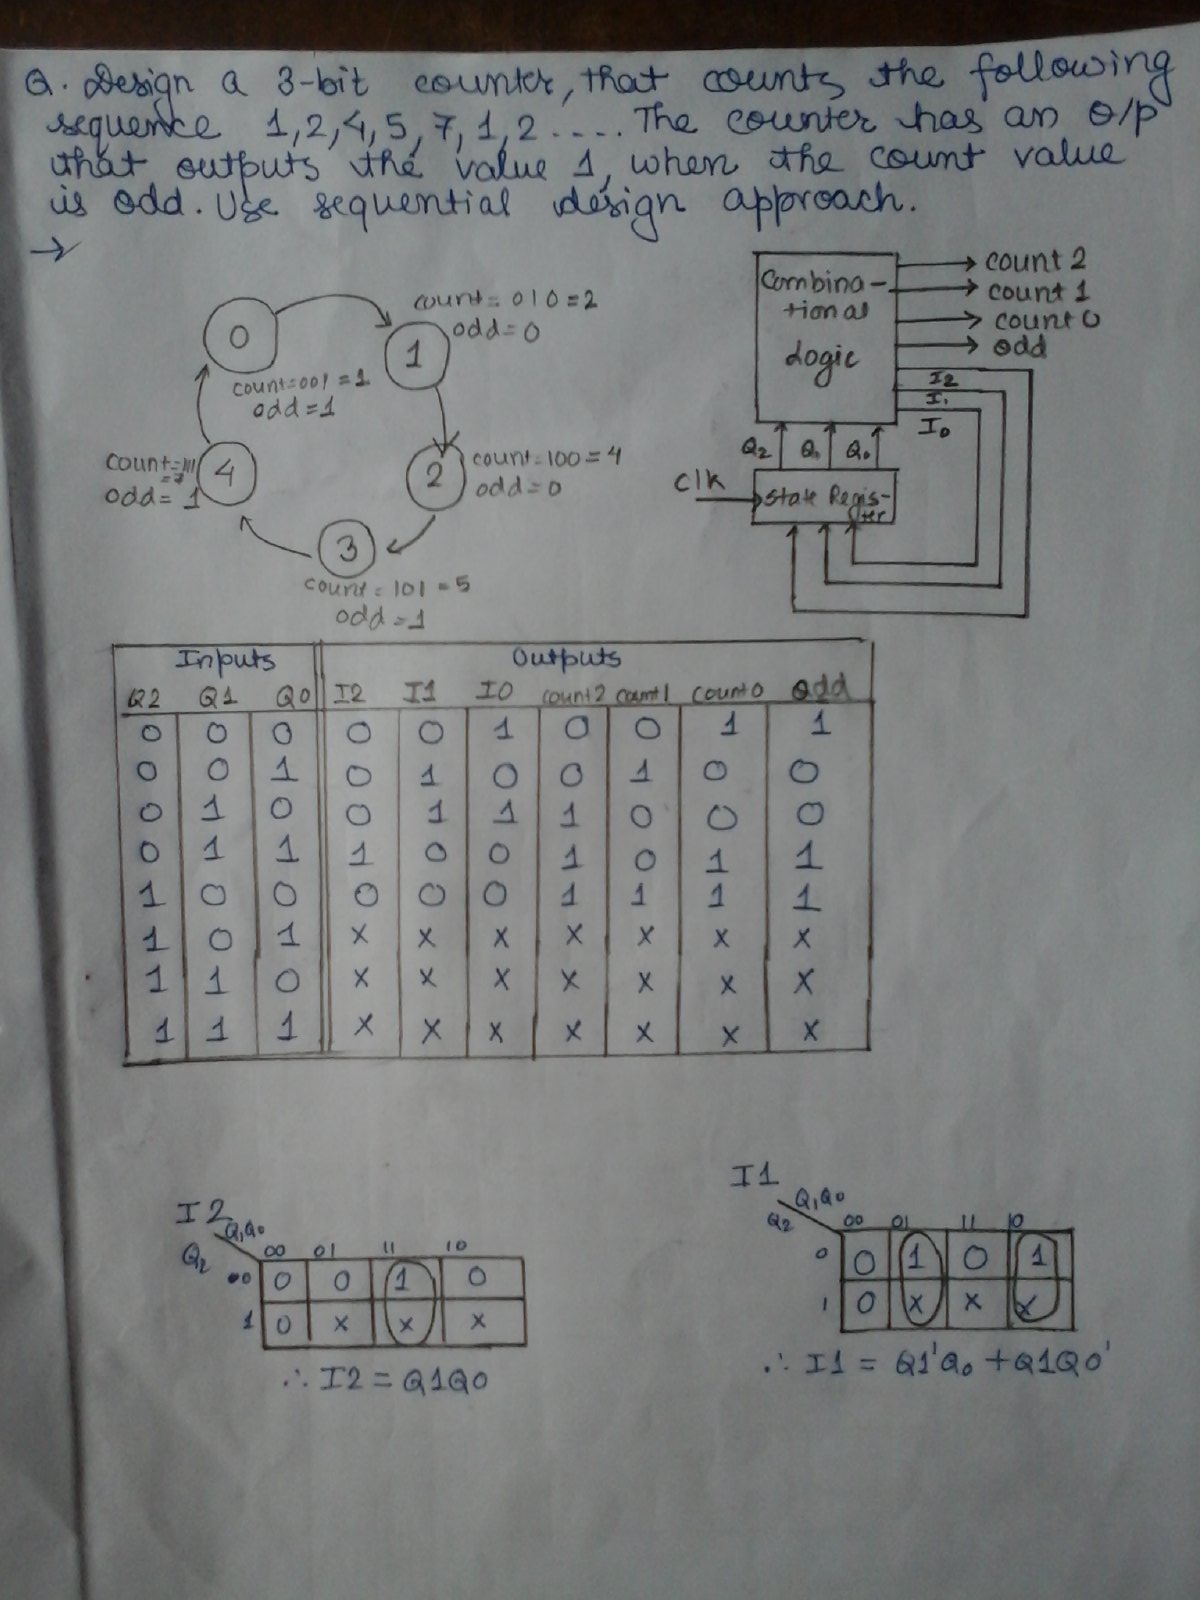 Q. Design a 3-bit counter, that counts the following
sequence 1,2,4,5,7,1,2 .... The counter has an O/P
that outputs the value 1, when the count value
is odd. Use sequential design approach.
→
0
count=001=1
odd=1
1
count=010=2
odd=0
2
count=100=4
odd=0
3
count=101=5
odd=1
4
count=111
=7
odd=1
Combina-
tional
Logic
count 2
count 1
count 0
odd
I2
I1
I0
Q2 Q1 Q0
Clk
State Regis-
ter
Inputs Outputs
Q2 Q1 Q0 I2 I1 I0 count2 count1 count0 Odd
0 0 0 0 0 1 0 0 1 1
0 0 1 0 1 0 0 1 0 0
0 1 0 0 1 1 1 0 0 0
0 1 1 1 0 0 1 0 1 1
1 0 0 0 0 0 1 1 1 1
1 0 1 x x x x x x x
1 1 0 x x x x x x x
1 1 1 x x x x x x x
I2
Q1Q0
Q2 00 01 11 10
0 0 0 1 0
1 0 x x x
∴ I2 = Q1Q0
I1
Q1Q0
Q2 00 01 11 10
0 0 1 0 1
1 0 x x x
∴ I1 = Q1'Q0 + Q1Q0'